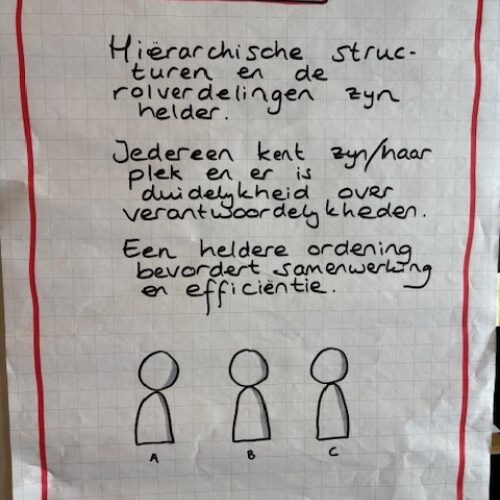 Hiërarchische struc-
turen en de
rolverdelingen zyn
helder.
Jedereen kent zyn/haar
plek en er is
duidelykheid over
verantwoordelykheden.
Een heldere ordening
bevordert samenwerking
en efficiëntie.
A B C